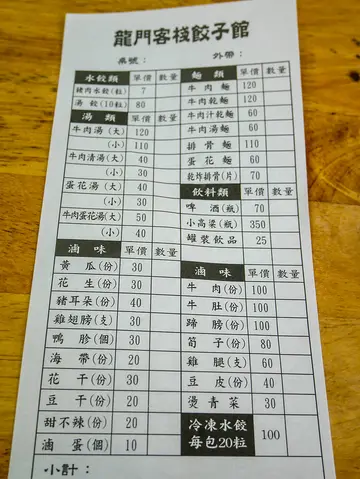 龍門客棧餃子館
桌號： 外帶：
水餃類 單價 數量
豬肉水餃(粒) 7
湯餃(10粒) 80
湯類 單價 數量
牛肉湯(大) 120
(小) 110
牛肉清湯(大) 40
(小) 30
蛋花湯(大) 40
(小) 30
牛肉蛋花湯(大) 50
(小) 40
滷味 單價 數量
黃瓜(份) 30
花生(份) 30
豬耳朵(份) 40
雞翅膀(支) 30
鴨胗(個) 30
海帶(份) 20
花干(份) 30
豆干(份) 20
甜不辣(份) 20
滷蛋(個) 10
麵類 單價 數量
牛肉麵 120
牛肉乾麵 120
牛肉汁乾麵 60
牛肉湯麵 60
排骨麵 110
蛋花麵 60
乾炸排骨(片) 70
飲料類 單價 數量
啤酒(瓶) 70
小高粱(瓶) 350
罐裝飲品 25
滷味 單價 數量
牛肉(份) 100
牛肚(份) 100
蹄膀(份) 100
筍子(份) 80
雞腿(支) 60
豆皮(份) 40
燙青菜 30
冷凍水餃
每包20粒 100
小計：